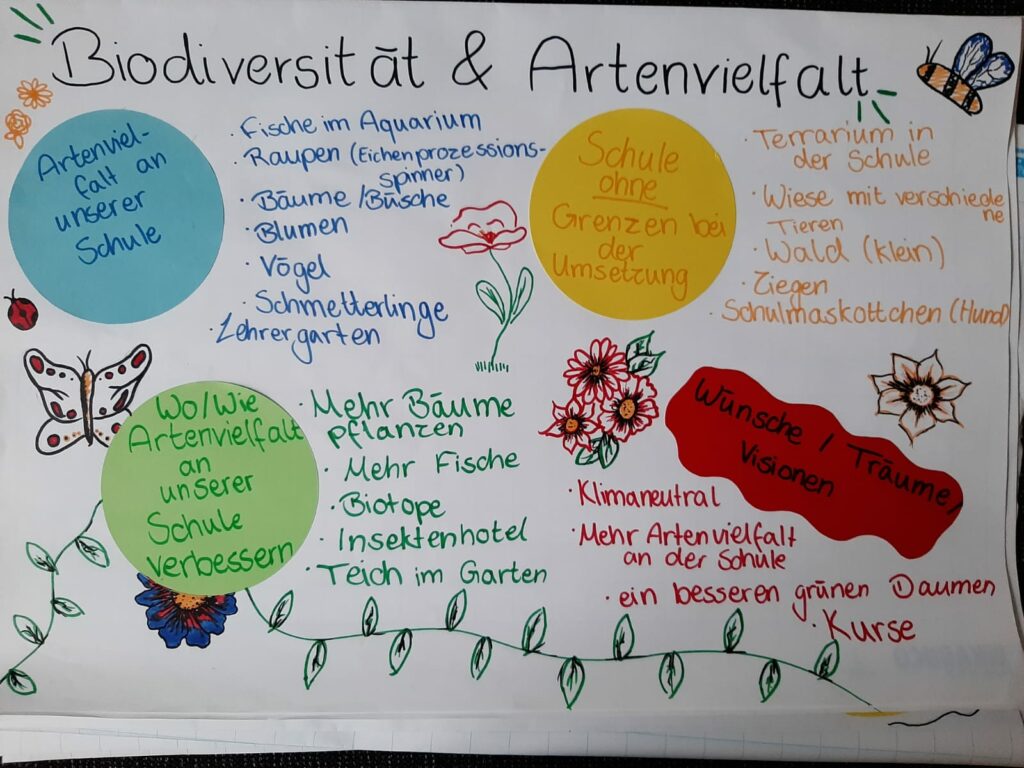 Biodiversität & Artenvielfalt
Artenviel-
falt an
unserer
Schule
· Fische im Aquarium
· Raupen (Eichenprozessions-
spinner)
· Bäume / Büsche
· Blumen
· Vögel
· Schmetterlinge
· Lehrergarten
Schule
ohne
Grenzen bei
der
Umsetzung
· Terrarium in
der Schule
· Wiese mit verschiede
ne
Tieren
· Wald (klein)
· Ziegen
· Schulmaskottchen (Hund)
Wo/Wie
Artenvielfalt
an
unserer
Schule
verbessern
· Mehr Bäume
pflanzen
· Mehr Fische
· Biotope
· Insektenhotel
· Teich im Garten
Wünsche / Träume /
Visionen
· Klimaneutral
· Mehr Artenvielfalt
an der Schule
· ein besseren grünen Daumen
· Kurse